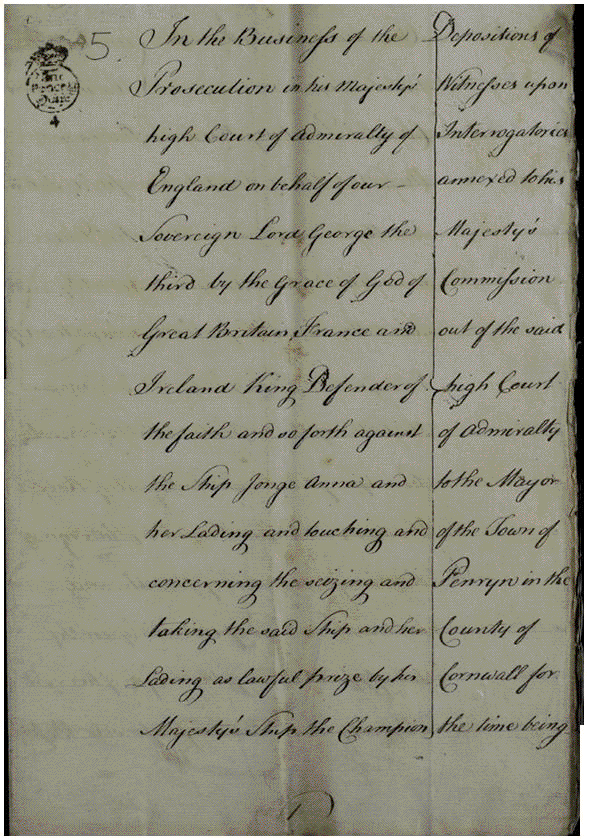 5.
In the Business of the
Prosecution in his Majesty's
high Court of Admiralty of
England on behalf of our
Sovereign Lord George the
third by the Grace of God of
Great Britain, France and
Ireland King Defender of
the faith and so forth against
the Ship Jonge Anna and
her Lading and touching and
concerning the seizing and
taking the said Ship and her
Lading as lawful prize by his
Majesty's Ship the Champion
Depositions of
Witnesses upon
Interrogatories
annexed to his
Majesty's
Commission
out of the said
high Court
of Admiralty
to the Mayor
of the Town of
Penryn in the
County of
Cornwall for
the time being
4